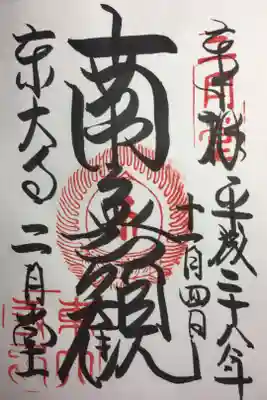 奉拝 平成二十八年
十一月四日
南無観
東大寺 二月堂